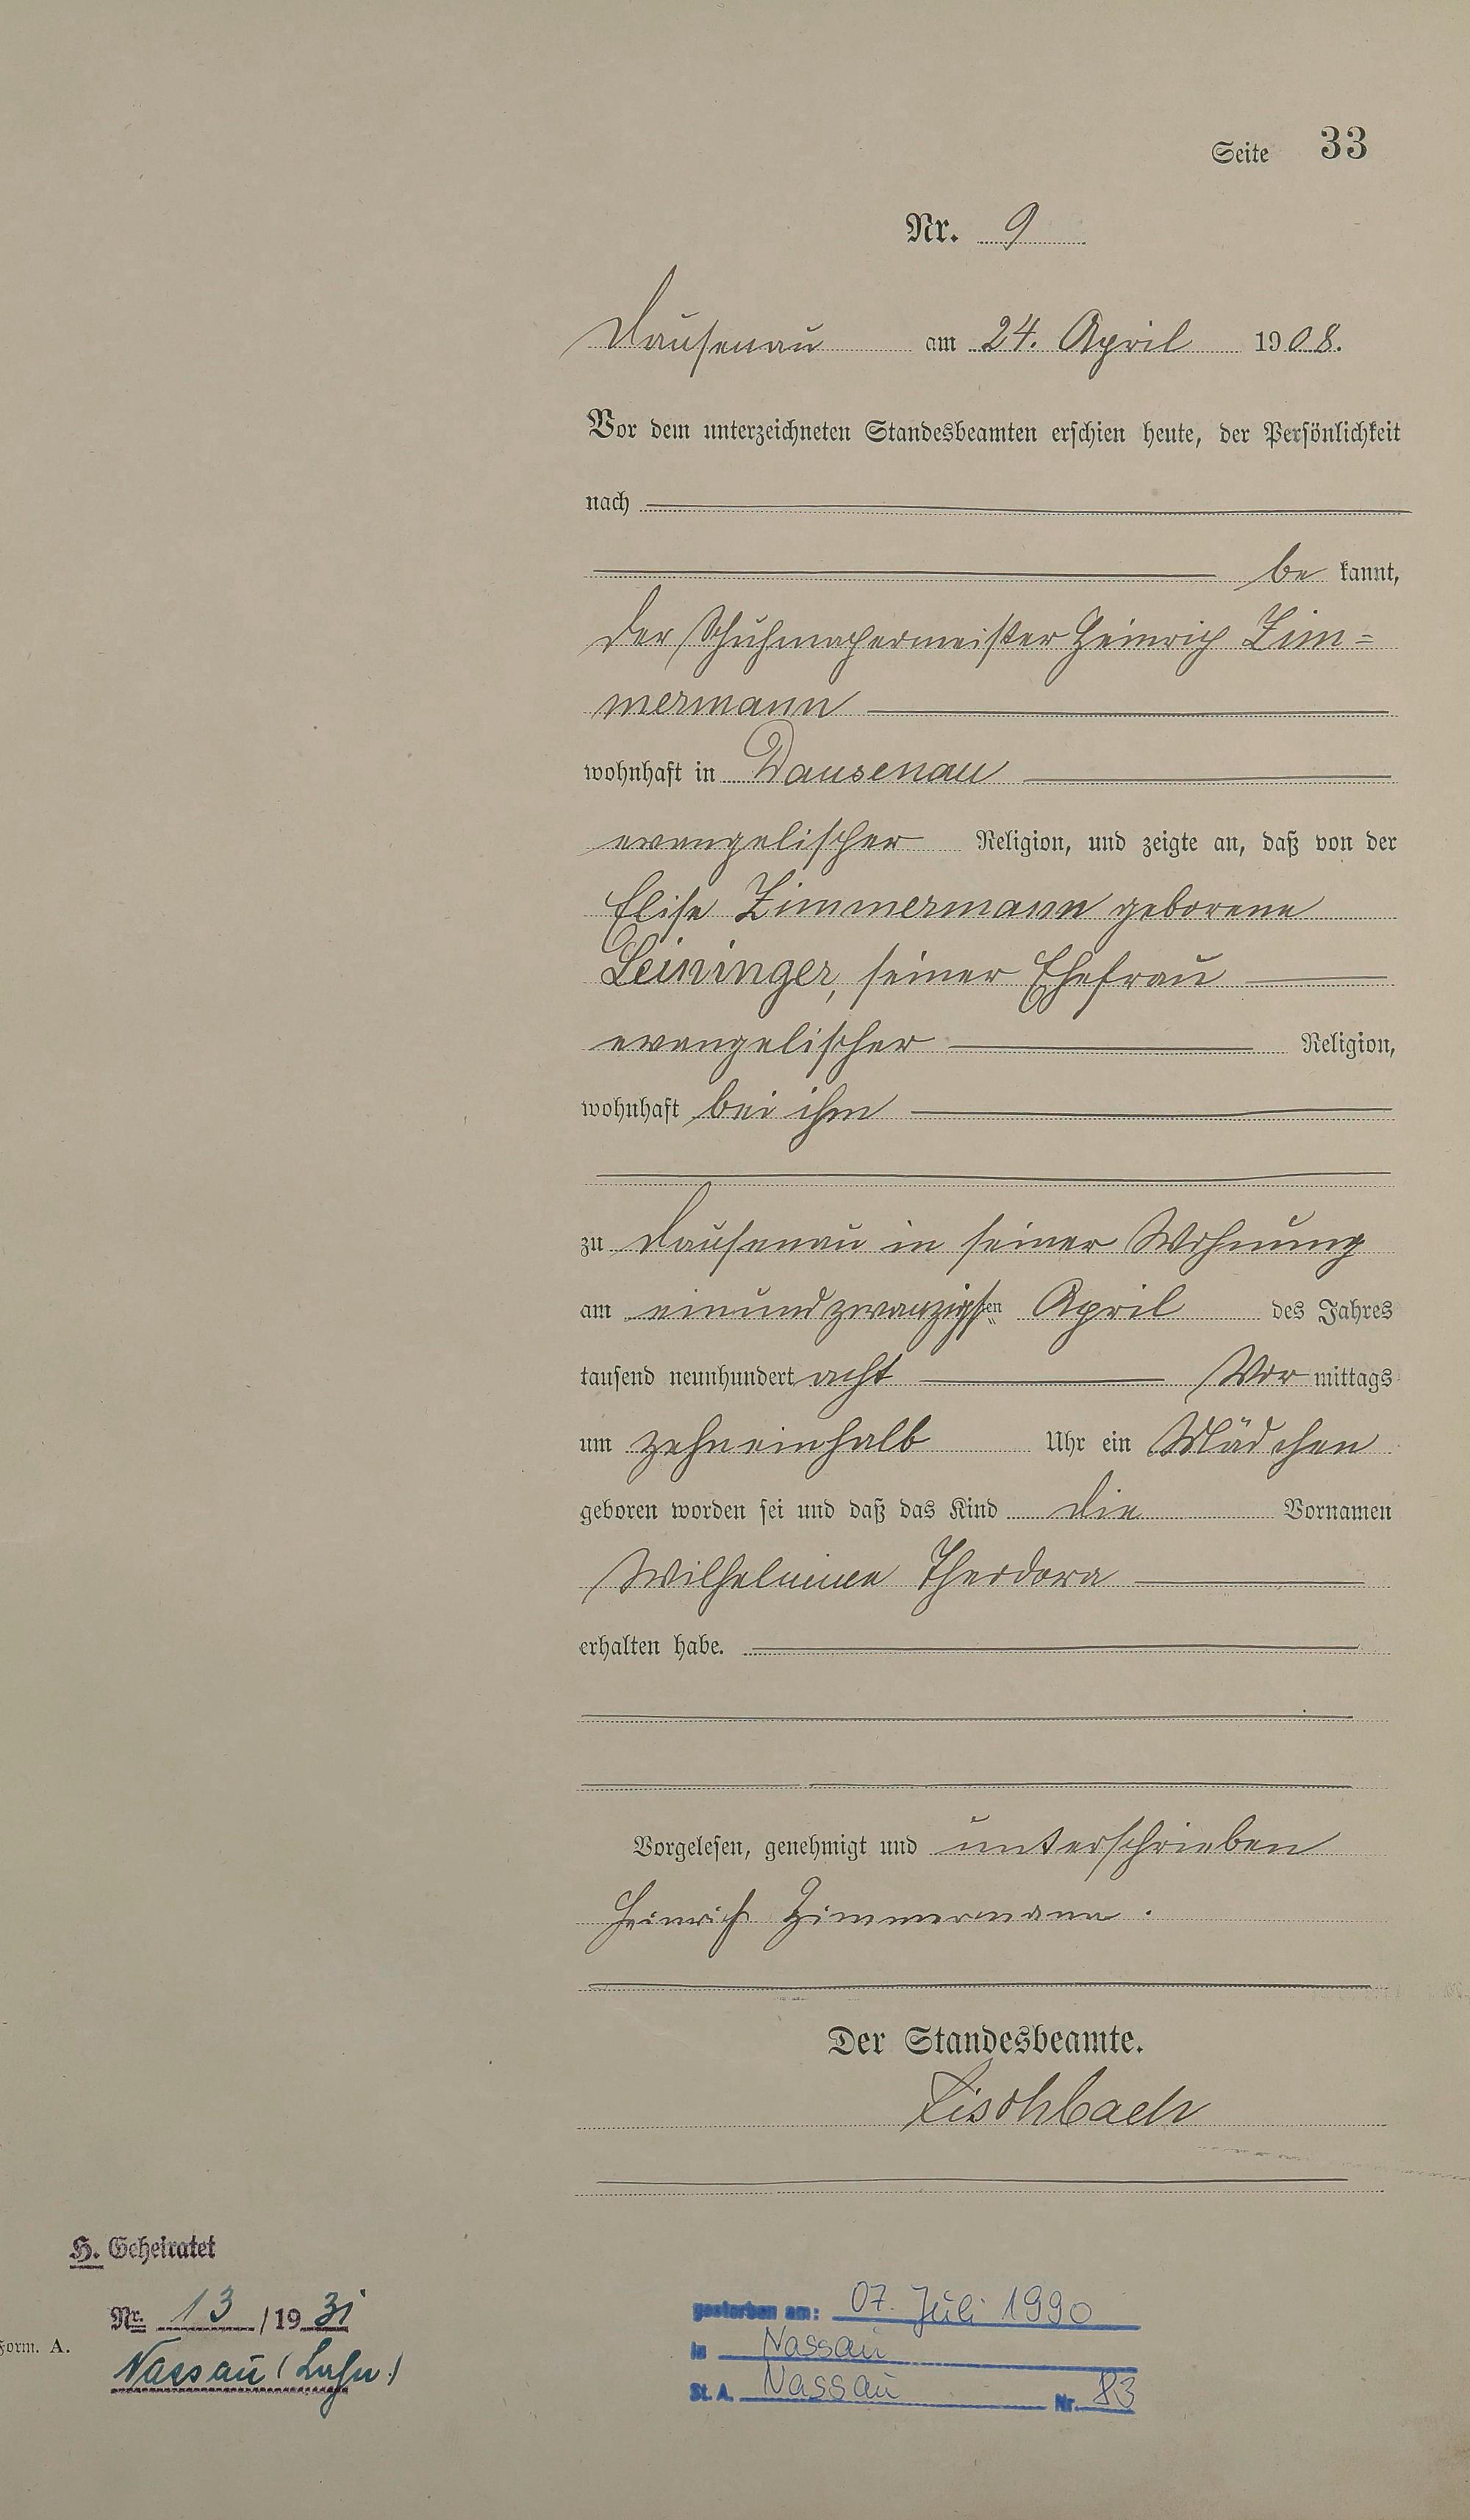 Seite 33
Nr. 9
Dausenau am 24. April 1908.
Vor dem unterzeichneten Standesbeamten erschien heute, der Persönlichkeit
nach
be kannt,
der Schuhmachermeister Heinrich Zim=
mermann
wohnhaft in Dausenau
evangelischer Religion, und zeigte an, daß von der
Elise Zimmermann geborene
Leininger, seiner Ehefrau
evangelischer Religion,
wohnhaft bei ihm
zu Dausenau in seiner Wohnung
am einundzwanzigsten April des Jahres
tausend neunhundert acht Vor mittags
um zehneinhalb Uhr ein Mädchen
geboren worden sei und daß das Kind die Vornamen
Wilhelmine Theodora
erhalten habe.
Vorgelesen, genehmigt und unterschrieben
Heinrich Zimmermann.
Der Standesbeamte.
Fischbach
H. Geheiratet
Nr. 13/1931
Nassau (Lahn)
Form. A.
gestorben am: 07. Juli 1990
in Nassau
St. A. Nassau Nr. 83